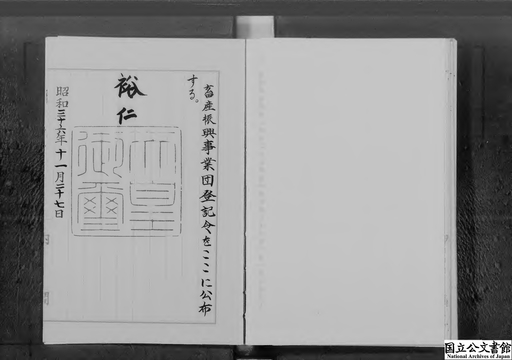 畜産振興事業団登記令をここに公布
する。
裕仁
天皇
御璽
昭和三十六年十一月二十七日
国立公文書館
National Archives of Japan